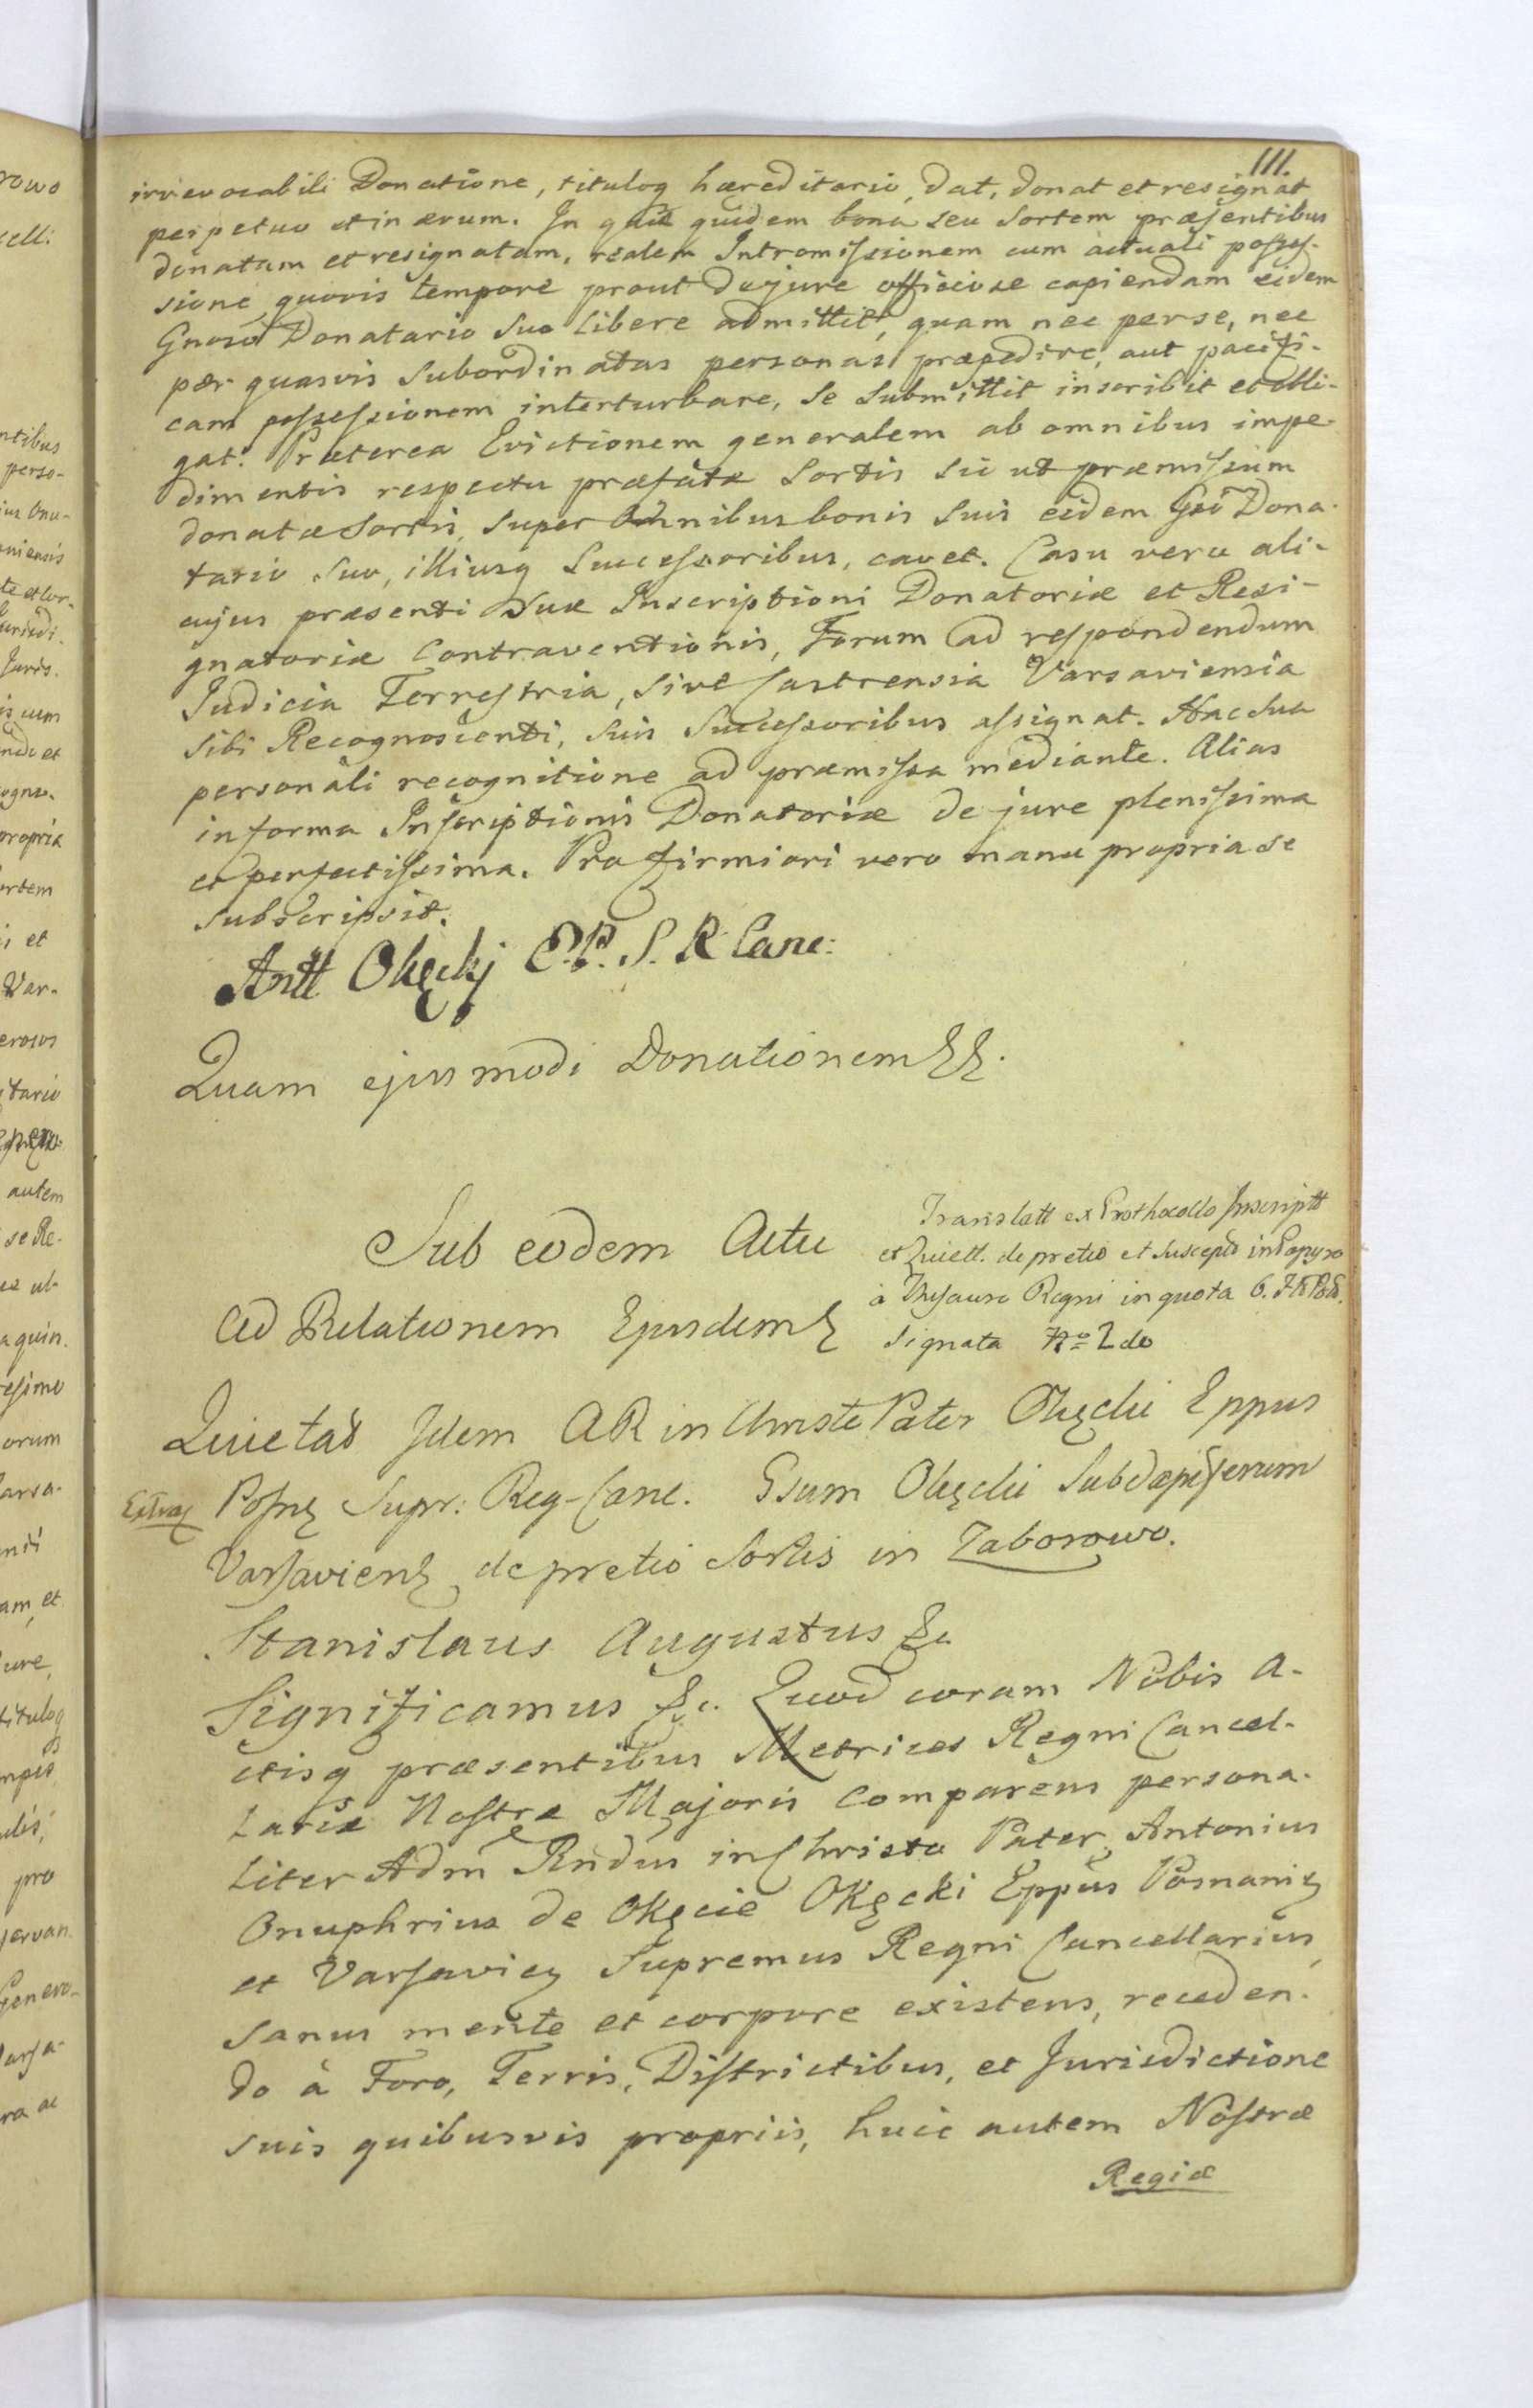 111.
irrevocabili Donatione, tituloq hæreditario, dat, donat et resignat
perpetuo et in ævum. In quæ quidem bona seu Sortem præsentibus
donatam et resignatam, realem Intromissionem cum actuali posses-
sione, quovis tempore prout de jure officiose capiendam eidem
Gnoso Donatario Suo libere admittit, quam nec per se, nec
per quasvis Subordinatas personas præpedire, aut pacifi-
cam possessionem interturbare, se Submittit inscribit et obli-
gat. Præterea Evictionem generalem ab omnibus impe-
dimentis respectu præfatæ Sortis sic ut præmissum
donatæ Sortis, super omnibus bonis suis eidem Gso Dona-
tario suo, illiusq Successoribus, cavet. Casu vero ali-
cujus præsenti suæ Inscriptioni Donatoriæ et Resi-
gnatoriæ Contraventionis, Forum ad respondendum
Judicia Terrestria, sive Castrensia Varsaviensia
Sibi Recognoscenti, suis Successoribus assignat. Hac sua
personali recognitione ad præmissa mediante. Alias
in forma Inscriptionis Donatoriæ de jure plenissima
et perfectissima. Pro firmiori vero manu propria se
subscripsit.
Antt Okęckj E. P. S. R Canc:
Quam ejusmodi Donationem &&.
Sub eodem Actu
Ad Relationem Ejusdem
Translatt ex Prothocollo Inscriptt
et Quiett. de pretio et suscepto in Papyro
à Thesauro Regni in quota 6.
signata No 2do
Quietat Idem AR in Christo Pater Okęcki Eppus
Extrad
Posn Supr: Reg-Canc. Gsum Okęcki Subdapiferum
Varsavien de pretio Sortis in Zaborowo.
Stanislaus Augustus &c
Significamus &c. Quod coram Nobis A-
ctisq præsentibus Metrices Regni Cancel-
lariæ Nostræ Majoris Comparens persona-
liter Adm Rndus in Christo Pater, Antonius
Onuphrius de Okęcie Okęcki Eppus Posnanie
et Varsavieñ Supremus Regni Cancellarius,
sanus mente et corpore existens, receden-
do à Foro, Terris, Districtibus, et Jurisdictione
suis quibusvis propriis, huic autem Nostræ
Regiæ